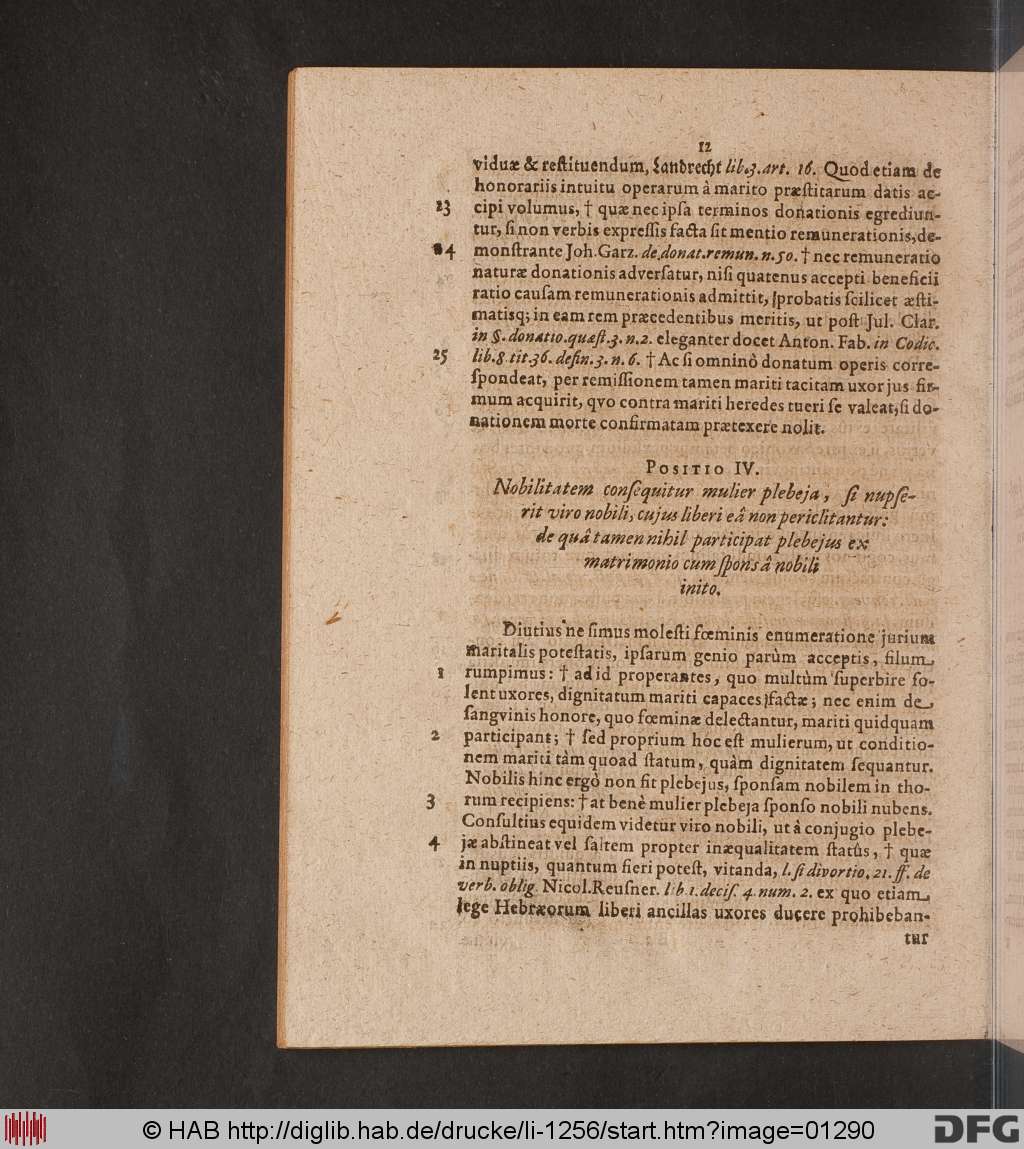 12
viduæ & reſtituendum, Landrecht lib.3.art. 16. Quod etiam de
honorariis intuitu operarum à marito præſtitarum datis ac-
23 cipi volumus, † quæ nec ipſa terminos donationis egrediun-
tur, ſi non verbis expreſſis facta ſit mentio remunerationis, de-
24 monſtrante Joh. Garz. de donat. remun. n.50. † nec remuneratio
naturæ donationis adverſatur, niſi quatenus accepti beneficii
ratio cauſam remunerationis admittit, probatis ſcilicet æſti-
matisq; in eam rem præcedentibus meritis, ut poſt Jul. Clar.
in §. donatio. quæſt. 3. n. 2. eleganter docet Anton. Fab. in Codic.
25 lib. 8 tit. 36. defin. 3. n. 6. † Ac ſi omninò donatum operis corre-
ſpondeat, per remiſſionem tamen mariti tacitam uxor jus fir-
mum acquirit, qvo contra mariti heredes tueri ſe valeat, ſi do-
nationem morte confirmatam prætexere nolit.
POSITIO IV.
Nobilitatem conſequitur mulier plebeja, ſi nupſe-
rit viro nobili, cujus liberi eâ non periclitantur:
de quâ tamen nihil participat plebejus ex
matrimonio cum ſponsâ nobili
inito.
Diutius ne ſimus moleſti fœminis enumeratione jurium
maritalis poteſtatis, ipſarum genio parùm acceptis, filum
1 rumpimus: † ad id properantes, quo multùm ſuperbire ſo-
lent uxores, dignitatum mariti capaces factæ; nec enim de
ſangvinis honore, quo fœminæ delectantur, mariti quidquam
2 participant; † ſed proprium hoc eſt mulierum, ut conditio-
nem mariti tàm quoad ſtatum, quàm dignitatem ſequantur.
Nobilis hinc ergò non fit plebejus, ſponſam nobilem in tho-
3 rum recipiens: † at benè mulier plebeja ſponſo nobili nubens.
Conſultius equidem videtur viro nobili, ut â conjugio plebe-
4 jæ abſtineat vel ſaltem propter inæqualitatem ſtatûs, † quæ
in nuptiis, quantum fieri poteſt, vitanda, l. ſi divortio. 21. ff. de
verb. oblig. Nicol. Reuſner. lib. 1. deciſ. 4. num. 2. ex quo etiam
lege Hebræorum liberi ancillas uxores ducere prohibeban-
tur
© HAB http://diglib.hab.de/drucke/li-1256/start.htm?image=01290
DFG